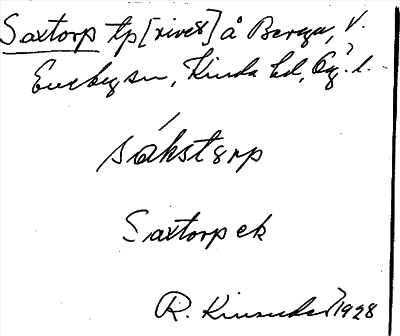 Saxtorp tp [rivet] å Berga, V.
Eneby sn, Kinda hd, Ög. l.
sákstɷrp
Saxtorp ek
R. Kinnander 1928